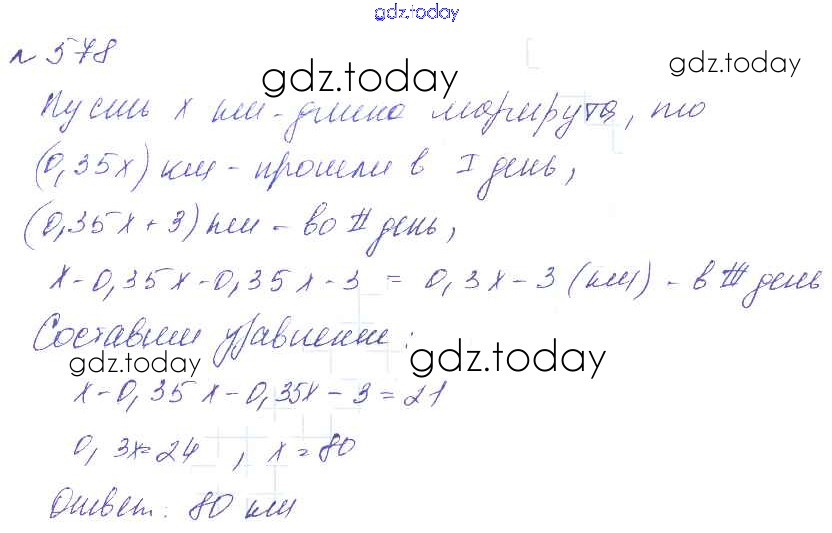 gdz.today
№ 578
gdz.today
gdz.today
Пусть x км - длина маршрута, то
(0,35x) км - прошли в I день,
(0,35x + 3) км - во II день,
x - 0,35x - 0,35x - 3 = 0,3x - 3 (км) - в III день
Составим уравнение:
gdz.today
gdz.today
x - 0,35x - 0,35x - 3 = 21
0,3x = 24 , x = 80
Ответ: 80 км